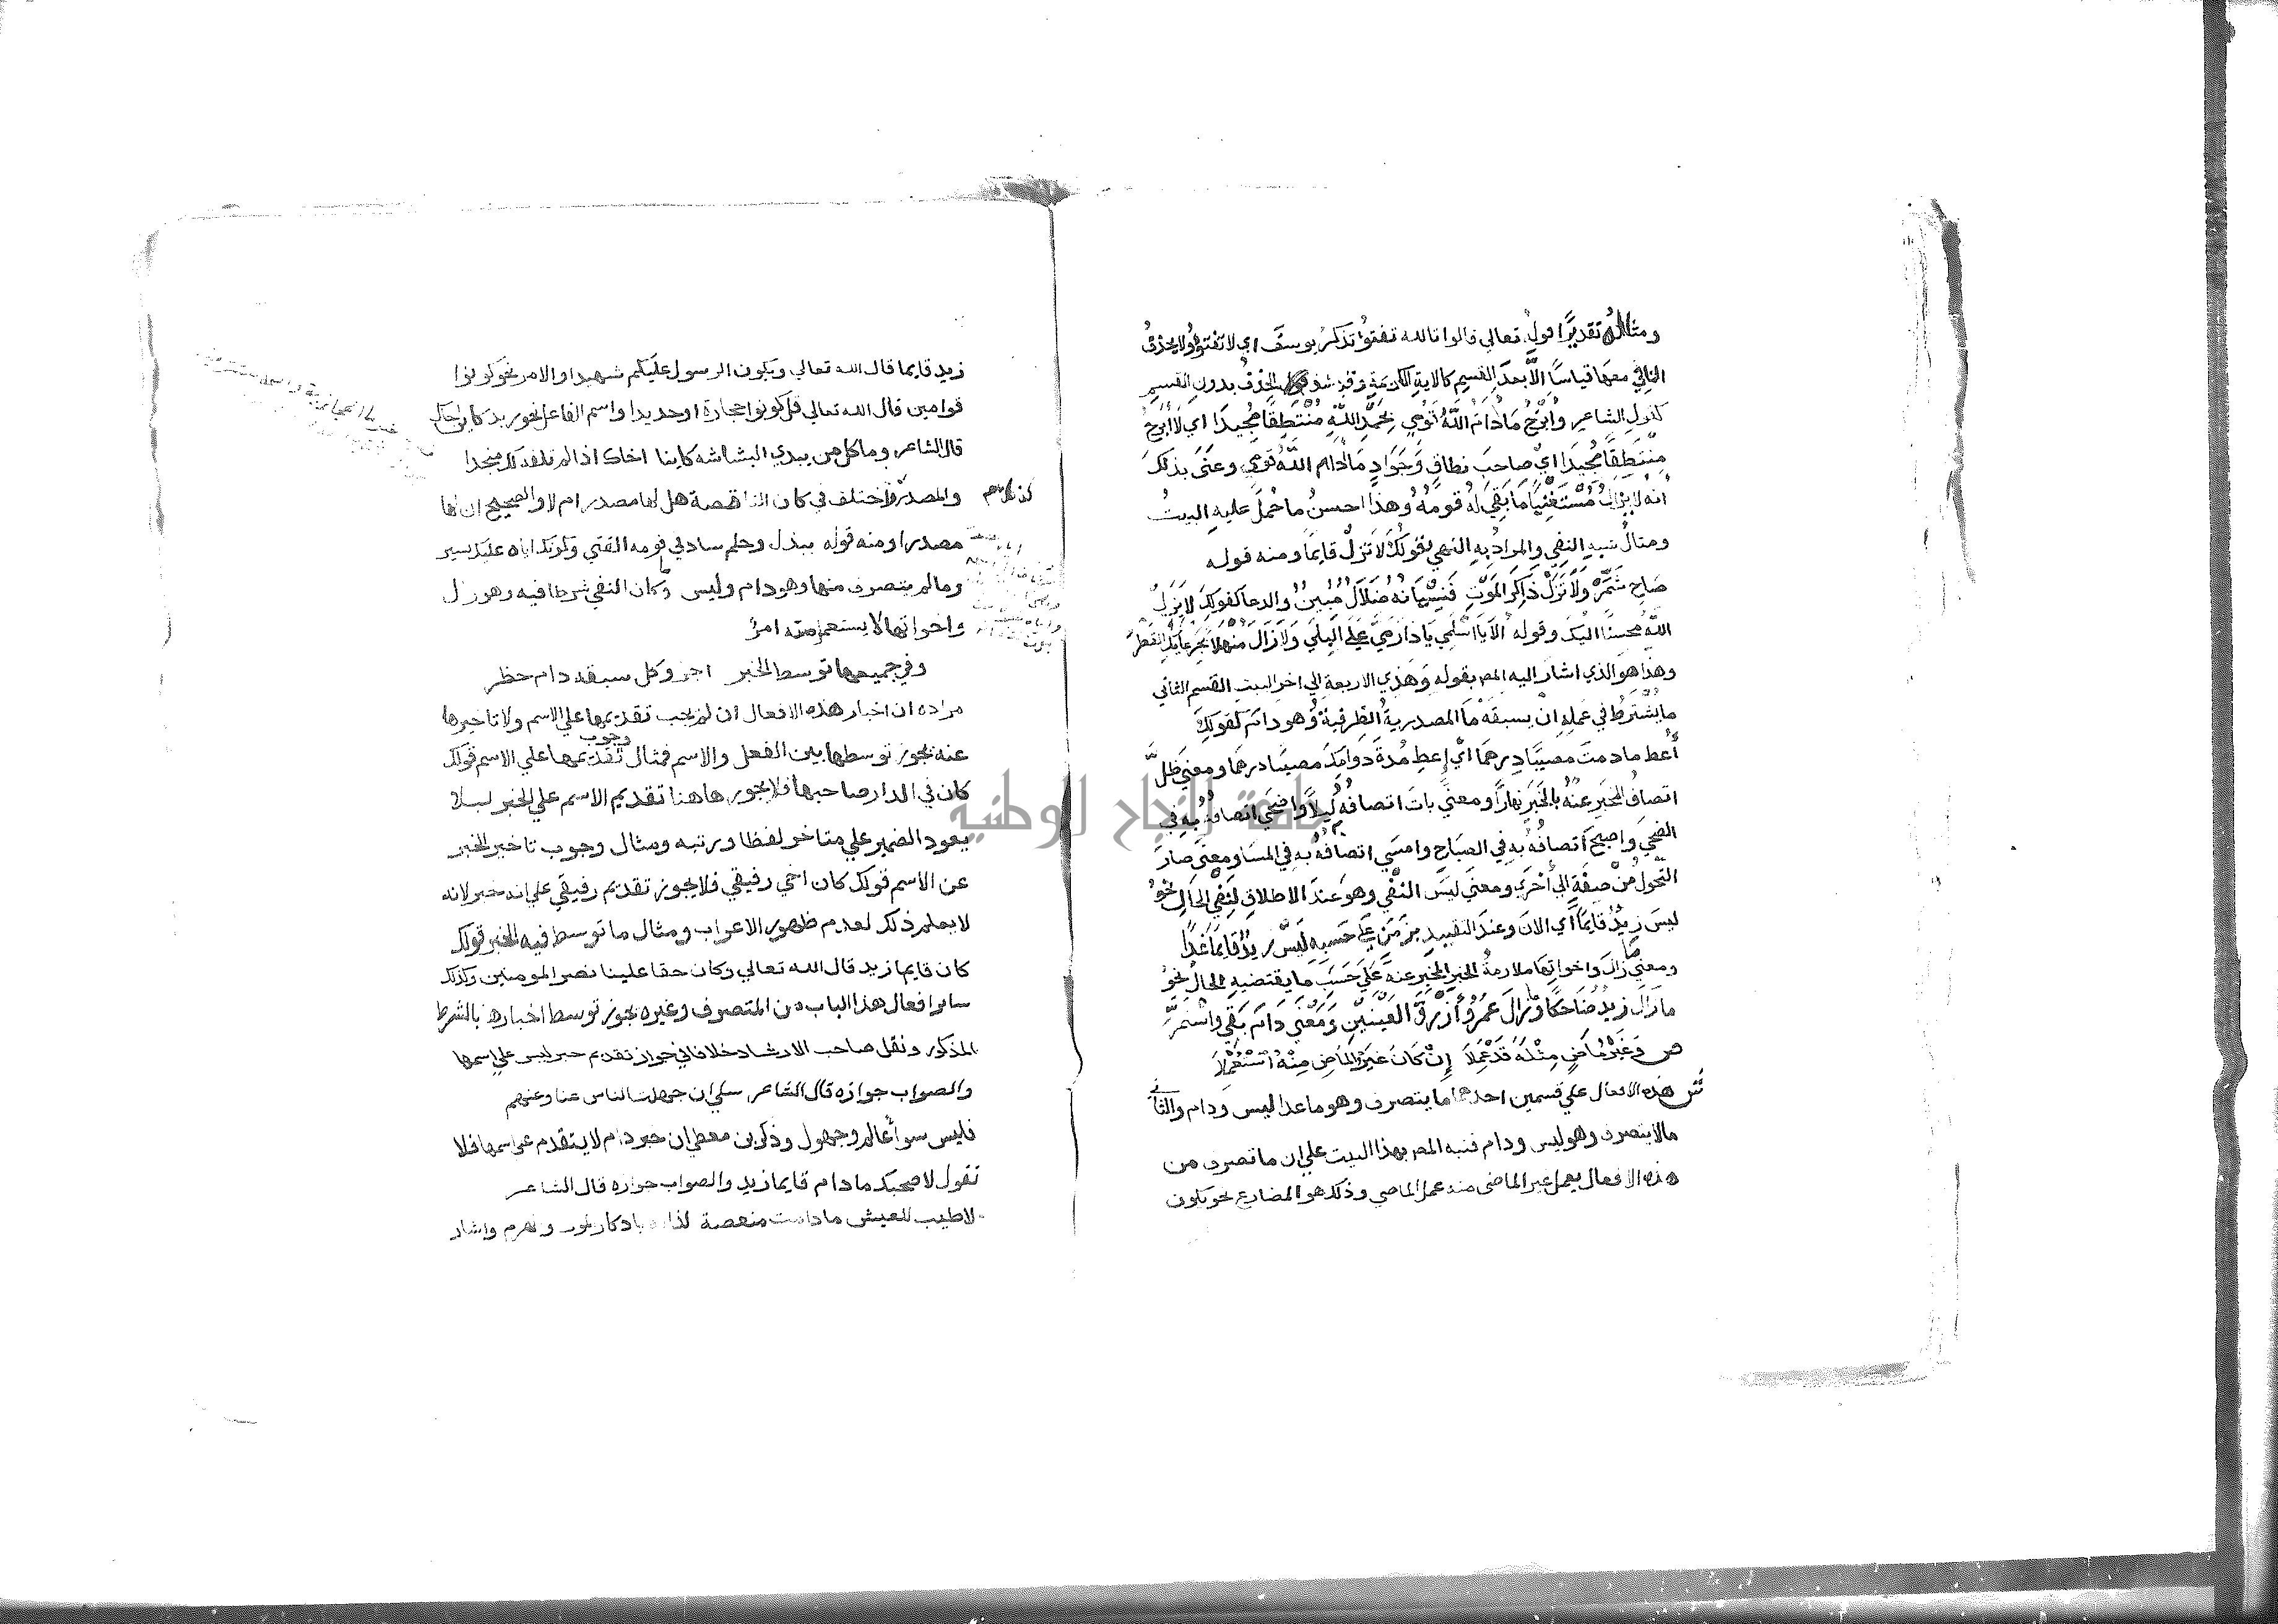 ومثاله تقديرا قوله تعالي قالوا تالله تفتؤا تذكر يوسف اي لا تفتؤ ولا يحذف
النافي معها قياسا الا بعد القسم كالاية الكريمة وقد شذ الحذف بدون القسم
كقول الشاعر وابرح ما دام الله قومي بحمد الله منتطقا مجيدا اي لا ابرح
منتطقا مجيدا اي صاحب نطاق وجواد ما دام الله قومي وعنى بذلك
انه لا يزال مستغنيا ما بقي له قومه وهذا احسن ما حمل عليه البيت
ومثال شبه النفي والمراد به النهي بقولك لا تزل قايما ومنه قوله
صاح شمر ولا تزل ذاكر الموت فنسيانه ضلال مبين والدعا كقولك لا يزال
الله محسنا اليك وقوله الا يا اسلمي يا دار مي علي البلي ولا زال منهلا بجرعايك القطر
وهذا هو الذي اشار اليه المص بقوله وهذي الاربعة الي اخر البيت القسم الثاني
ما يشترط في عمله ان يسبقه ما المصدرية الظرفية وهو دام كقولك
أعط ما دمت مصيبا درهما اي إعط مدة دوامك مصيبا درهما ومعني ظل
اتصاف المخبر عنه بالخبر نهارا ومعني بات اتصافه ليلا واضحى اتصافه به في
الضحي واصبح اتصافه به في الصباح وامسي اتصافه به في المسا ومعنى صار
التحول من صفة الي أخرى ومعنى ليس النفي وهو عند الاطلاق لنفي الحال نحو
ليس زيد قايما أي الان وعند التقييد بزمن علي حسبه ليس زيد قايما غدا
ومعني ما زال واخواتها ملازمة الخبر المخبر عنه علي حسب ما يقتضيه الحال نحو
ما زال زيد ضاحكا وما زال عمرو أزرق العينين ومعنى دام بقي واستمر
ص وغير ماض مثله قد عملا إن كان غير الماض منه استعملا
ش هذه الافعال علي قسمين احدهما ما يتصرف وهو ما عدا ليس ودام والثاني
مالا يتصرف وهو ليس ودام فنبه المص بهذا البيت علي ان ما تصرف من
هذه الافعال يعمل غير الماضي منه عمل الماضي وذلك هو المضارع نحو يكون
زيد قايما قال الله تعالي ويكون الرسول عليكم شهيدا والامر نحو كونوا
قوامين قال الله تعالي قل كونوا حجارة او حديدا واسم الفاعل نحو زيد كاين اخاك
قال الشاعر وما كل من يبدي البشاشه كاينا اخاك اذا لم تلفه لك منجدا
والمصدر واختلف في كان الناقصة هل لها مصدر ام لا والصحيح ان لها
مصدرا ومنه قوله ببذل وحلم ساد في قومه الفتي وكونك اياه عليك يسير
وما لم يتصرف منها وهو دام وليس وما كان النفي شرطا فيه وهو زال
واخواتها لا يستعمل منه امر
وفي جميعها توسط الخبر اجز وكل سبقه دام حظر
مراده ان اخبار هذه الافعال ان لم يجب تقديمها علي الاسم ولا تاخيرها
عنه يجوز توسطها بين الفعل والاسم فمثال وجوب تقديمها علي الاسم قولك
كان في الدار صاحبها فلا يجوز هاهنا تقديم الاسم علي الخبر ليلا
يعود الضمير علي متاخر لفظا ورتبه ومثال وجوب تاخير الخبر
عن الاسم قولك كان اخي رفيقي فلا يجوز تقديم رفيقي علي انه خبر لانه
لا يعلم ذلك لعدم ظهور الاعراب ومثال ما توسط فيه الخبر قولك
كان قايما زيد قال الله تعالي وكان حقا علينا نصر المومنين وكذلك
ساير افعال هذا الباب من المتصرف وغيره يجوز توسط اخبارها بالشرط
المذكور ونقل صاحب الارشاد خلافا في جواز تقديم خبر ليس علي اسمها
والصواب جوازه قال الشاعر سلي ان جهلت الناس عنا وعنهم
فليس سوأ عالم وجهول وذكر بن معط ان خبر دام لا يتقدم على اسمها فلا
تقول لا اصحبك ما دام قايما زيد والصواب جوازه قال الشاعر
لا طيب للعيش ما دامت منغصة لذاته بادكار الموت والهرم واشار
جامعة النجاح الوطنية